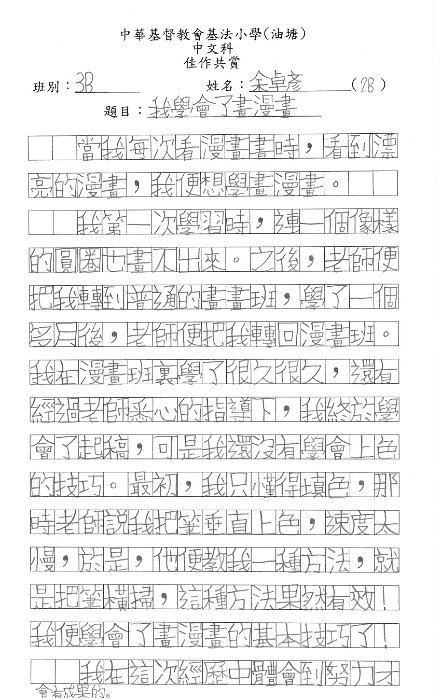 中華基督教會基法小學(油塘)
中文科
佳作共賞
班別：3B 姓名：余卓彥 (28)
題目：我學會了畫漫畫
當我每次看漫畫書時，看到漂
亮的漫畫，我便想學畫漫畫。
我第一次學習時，連一個像樣
的圓圈也畫不出來。之後，老師便
把我轉到普通的畫畫班，學了一個
多月後，老師便把我轉回漫畫班。
我在漫畫班裏學了很久很久，還有
經過老師悉心的指導下，我終於學
會了起稿，可是我還沒有學會上色
的技巧。最初，我只懂得填色，那
時老師說我把筆垂直上色，速度太
慢，於是，他便教我一種方法，就
是把筆橫掃，這種方法果然有效！
我便學會了畫漫畫的基本技巧了！
我在這次經歷中體會到努力才
會有成果的。